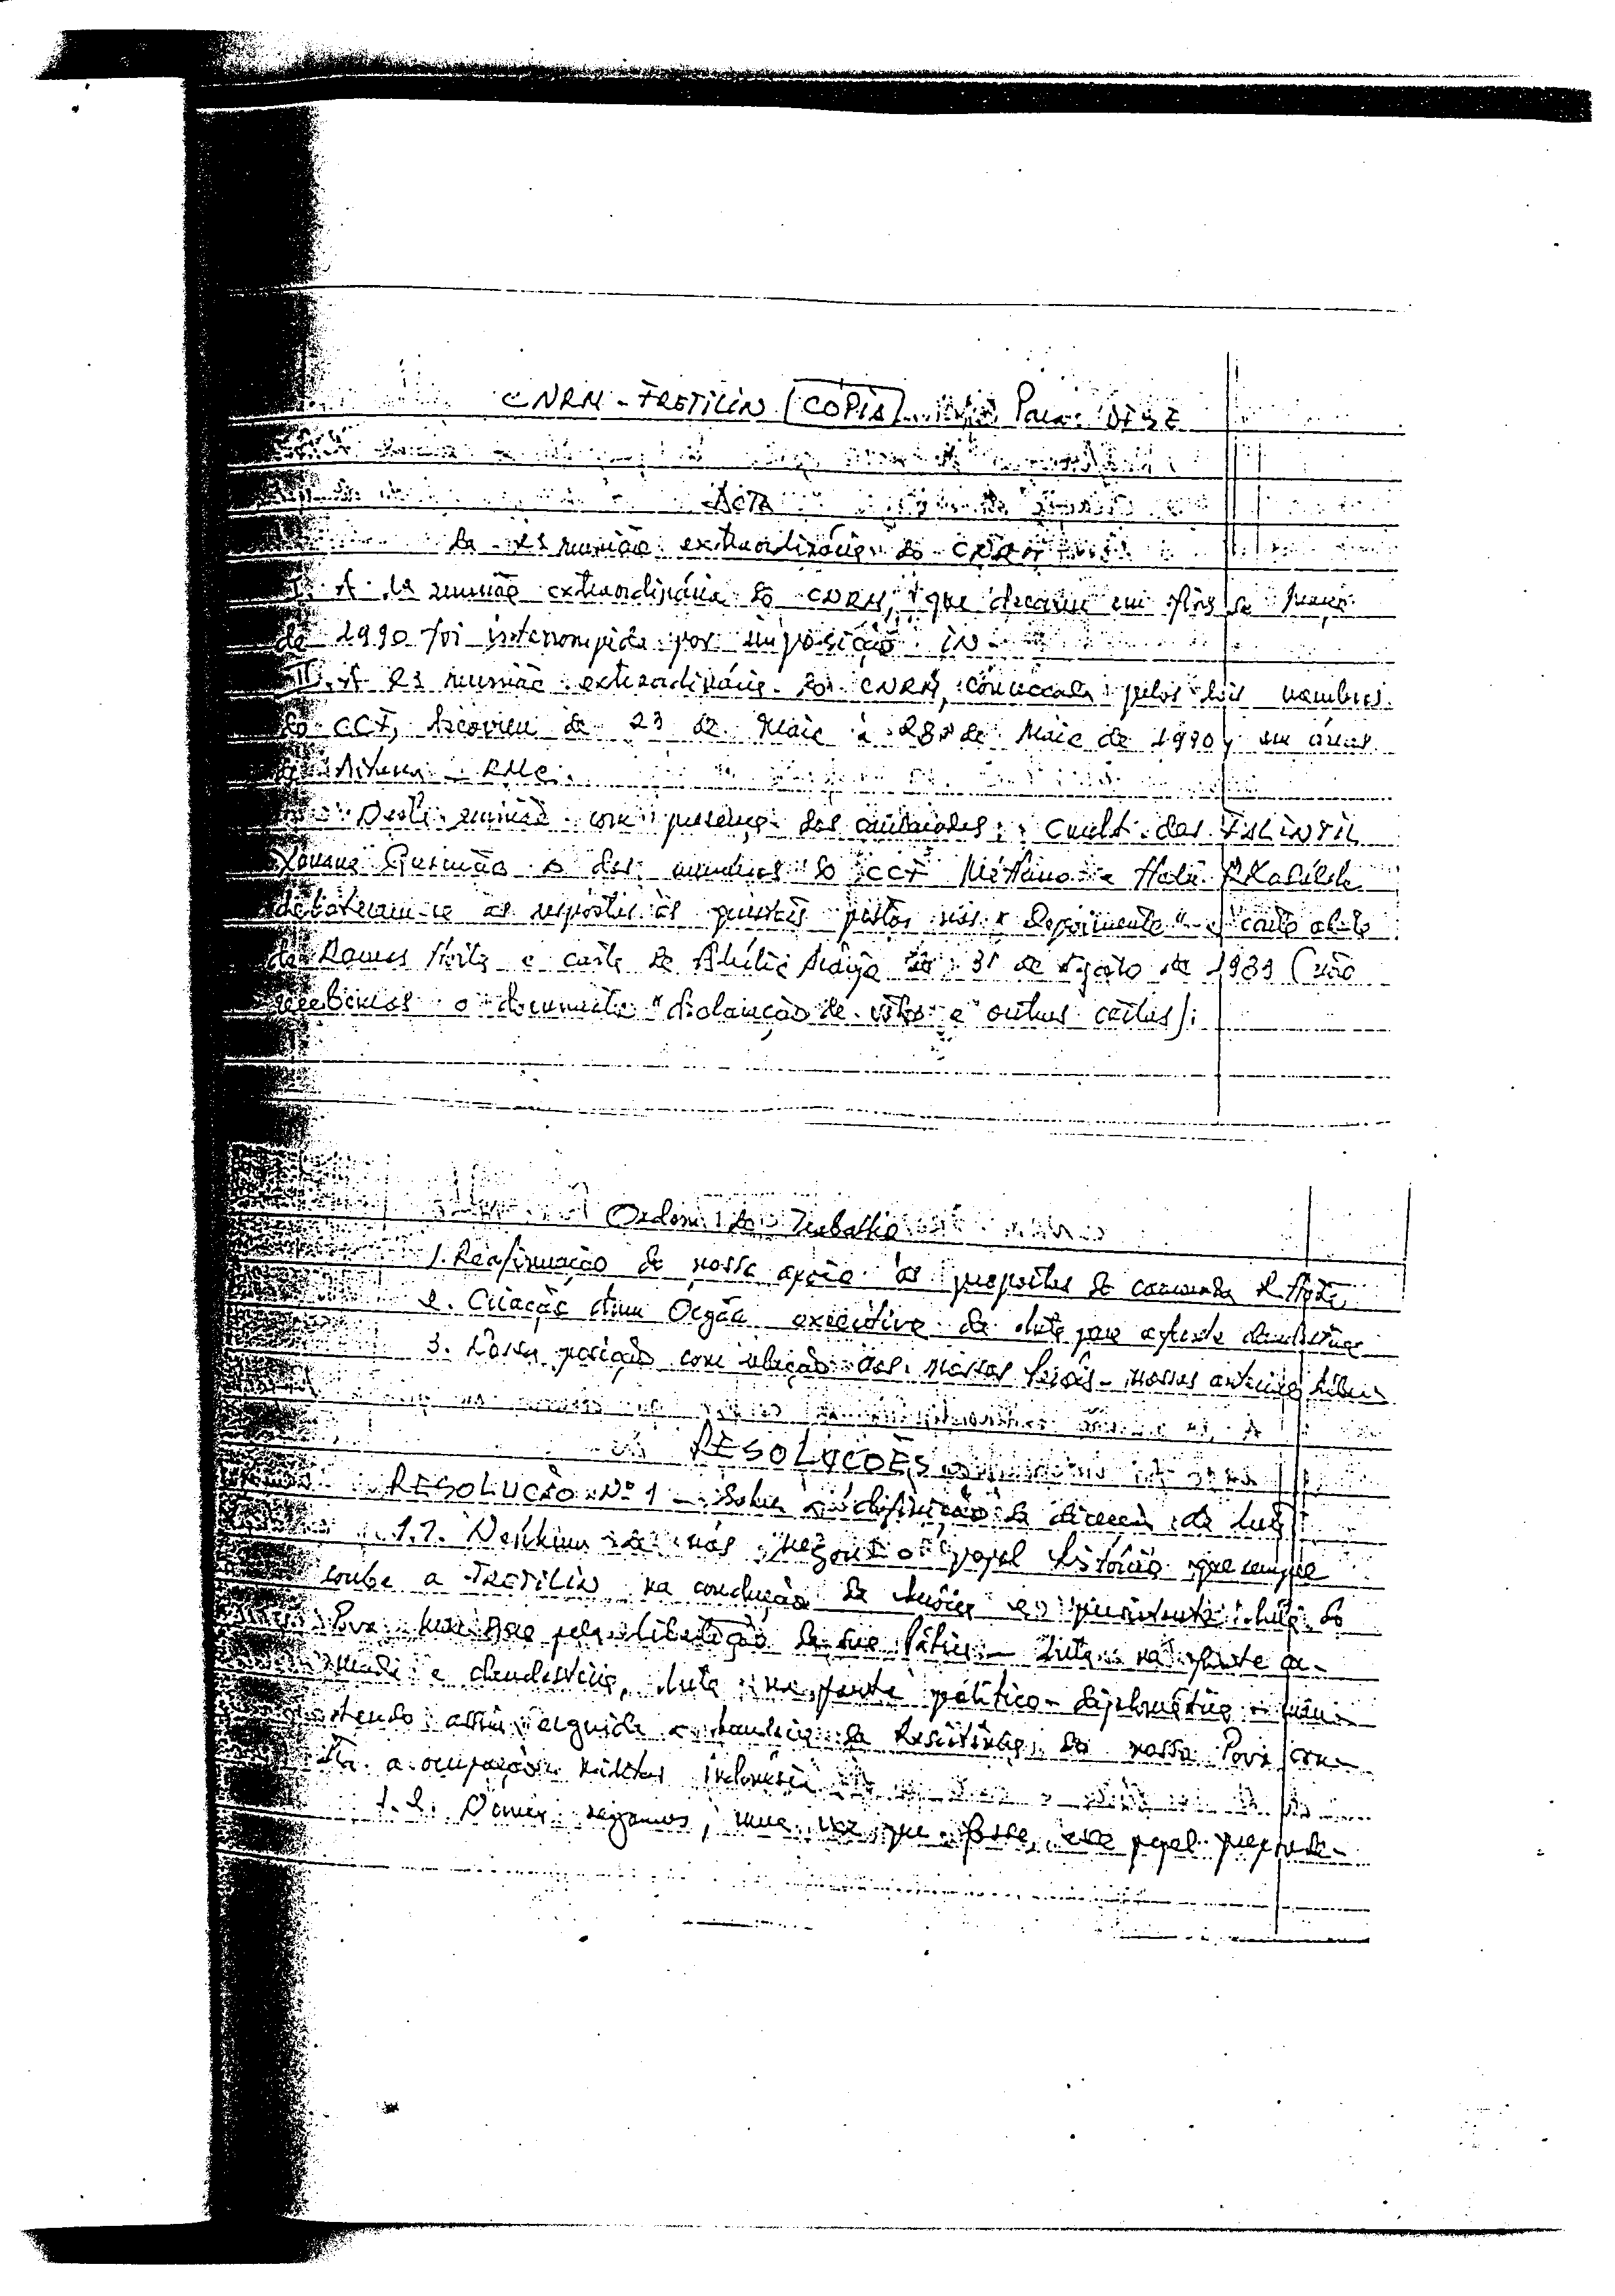 CNRM - FRETILIN [COPIA] Para: DFSE
ACTA
da 2ª reunião extraordinária do CNRM
I. A 1ª reunião extraordinária do CNRM, que decorreu em fins de
de 1990 foi interrompida por imposição IN.
II. A 2ª reunião extraordinária do CNRM, convocada pelos dois membros
do CCF, decorreu de 23 de Maio à 28 de Maio de 1990, em áreas
RMC.
Desta reunião com presença dos camaradas: Cmdt. das FALINTIL
Xanana Gusmão e dos membros do CCF Mé Hunu e Hodu R. Kadalak
debateram-se as respostas às questões postas nos "Depoimento" e carta aberta
de Ramos Horta e carta de Abílio Araújo de 31 de Agosto de 1989 (não
recebemos o documento "declaração de voto e outras cartas):
Ordem do Trabalho
1. Reafirmação do nosso apoio às propostas do camarada R. Horta
2. Criação dum Orgão executivo da luta para a frente clandestina
3. Nossa posição com relação aos nossos
RESOLUÇÕES
RESOLUÇÃO Nº 1 - Sobre a definição da direcção da luta
1.1. Nenhum de nós negou o papel histórico que sempre
coube a FRETILIN na condução da heróica e persistente luta do
Povo Mau Bere pela libertação da sua Pátria - luta na frente ar-
mada e clandestina, luta na frente político-diplomática - man-
tendo assim erguida a bandeira da Resistência do nosso Povo con-
tra a ocupação militar indonésia.
1.2. Nunca negamos, uma vez que fosse, esse papel prepode-